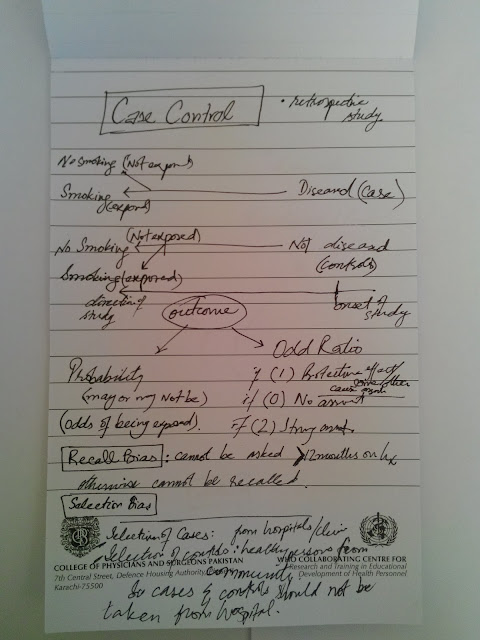 Case Control
• retrospective study
No smoking (Not expord)
Smoking (expord)
Diseased (case)
(Not exposed)
No Smoking
Not diseased (controls)
Smoking (exposed)
direction of study
onset of study
outcome
Odd Ratio
Probability
(may or may Not be)
(odds of being expord).
if (1) Protective effect
if (0) No
if (2) Strong
Recall Bias : cannot be asked >12 months on hx
otherwise cannot be recalled.
Selection Bias
Selection of Cases: from hospitals/clinic
Selection of controls: healthy persons from community
COLLEGE OF PHYSICIANS AND SURGEONS PAKISTAN
7th Central Street, Defence Housing Authority,
Karachi-75500
WHO COLLABORATING CENTRE FOR
Research and Training in Educational
Development of Health Personnel
So cases & controls should not be
taken from hospital.